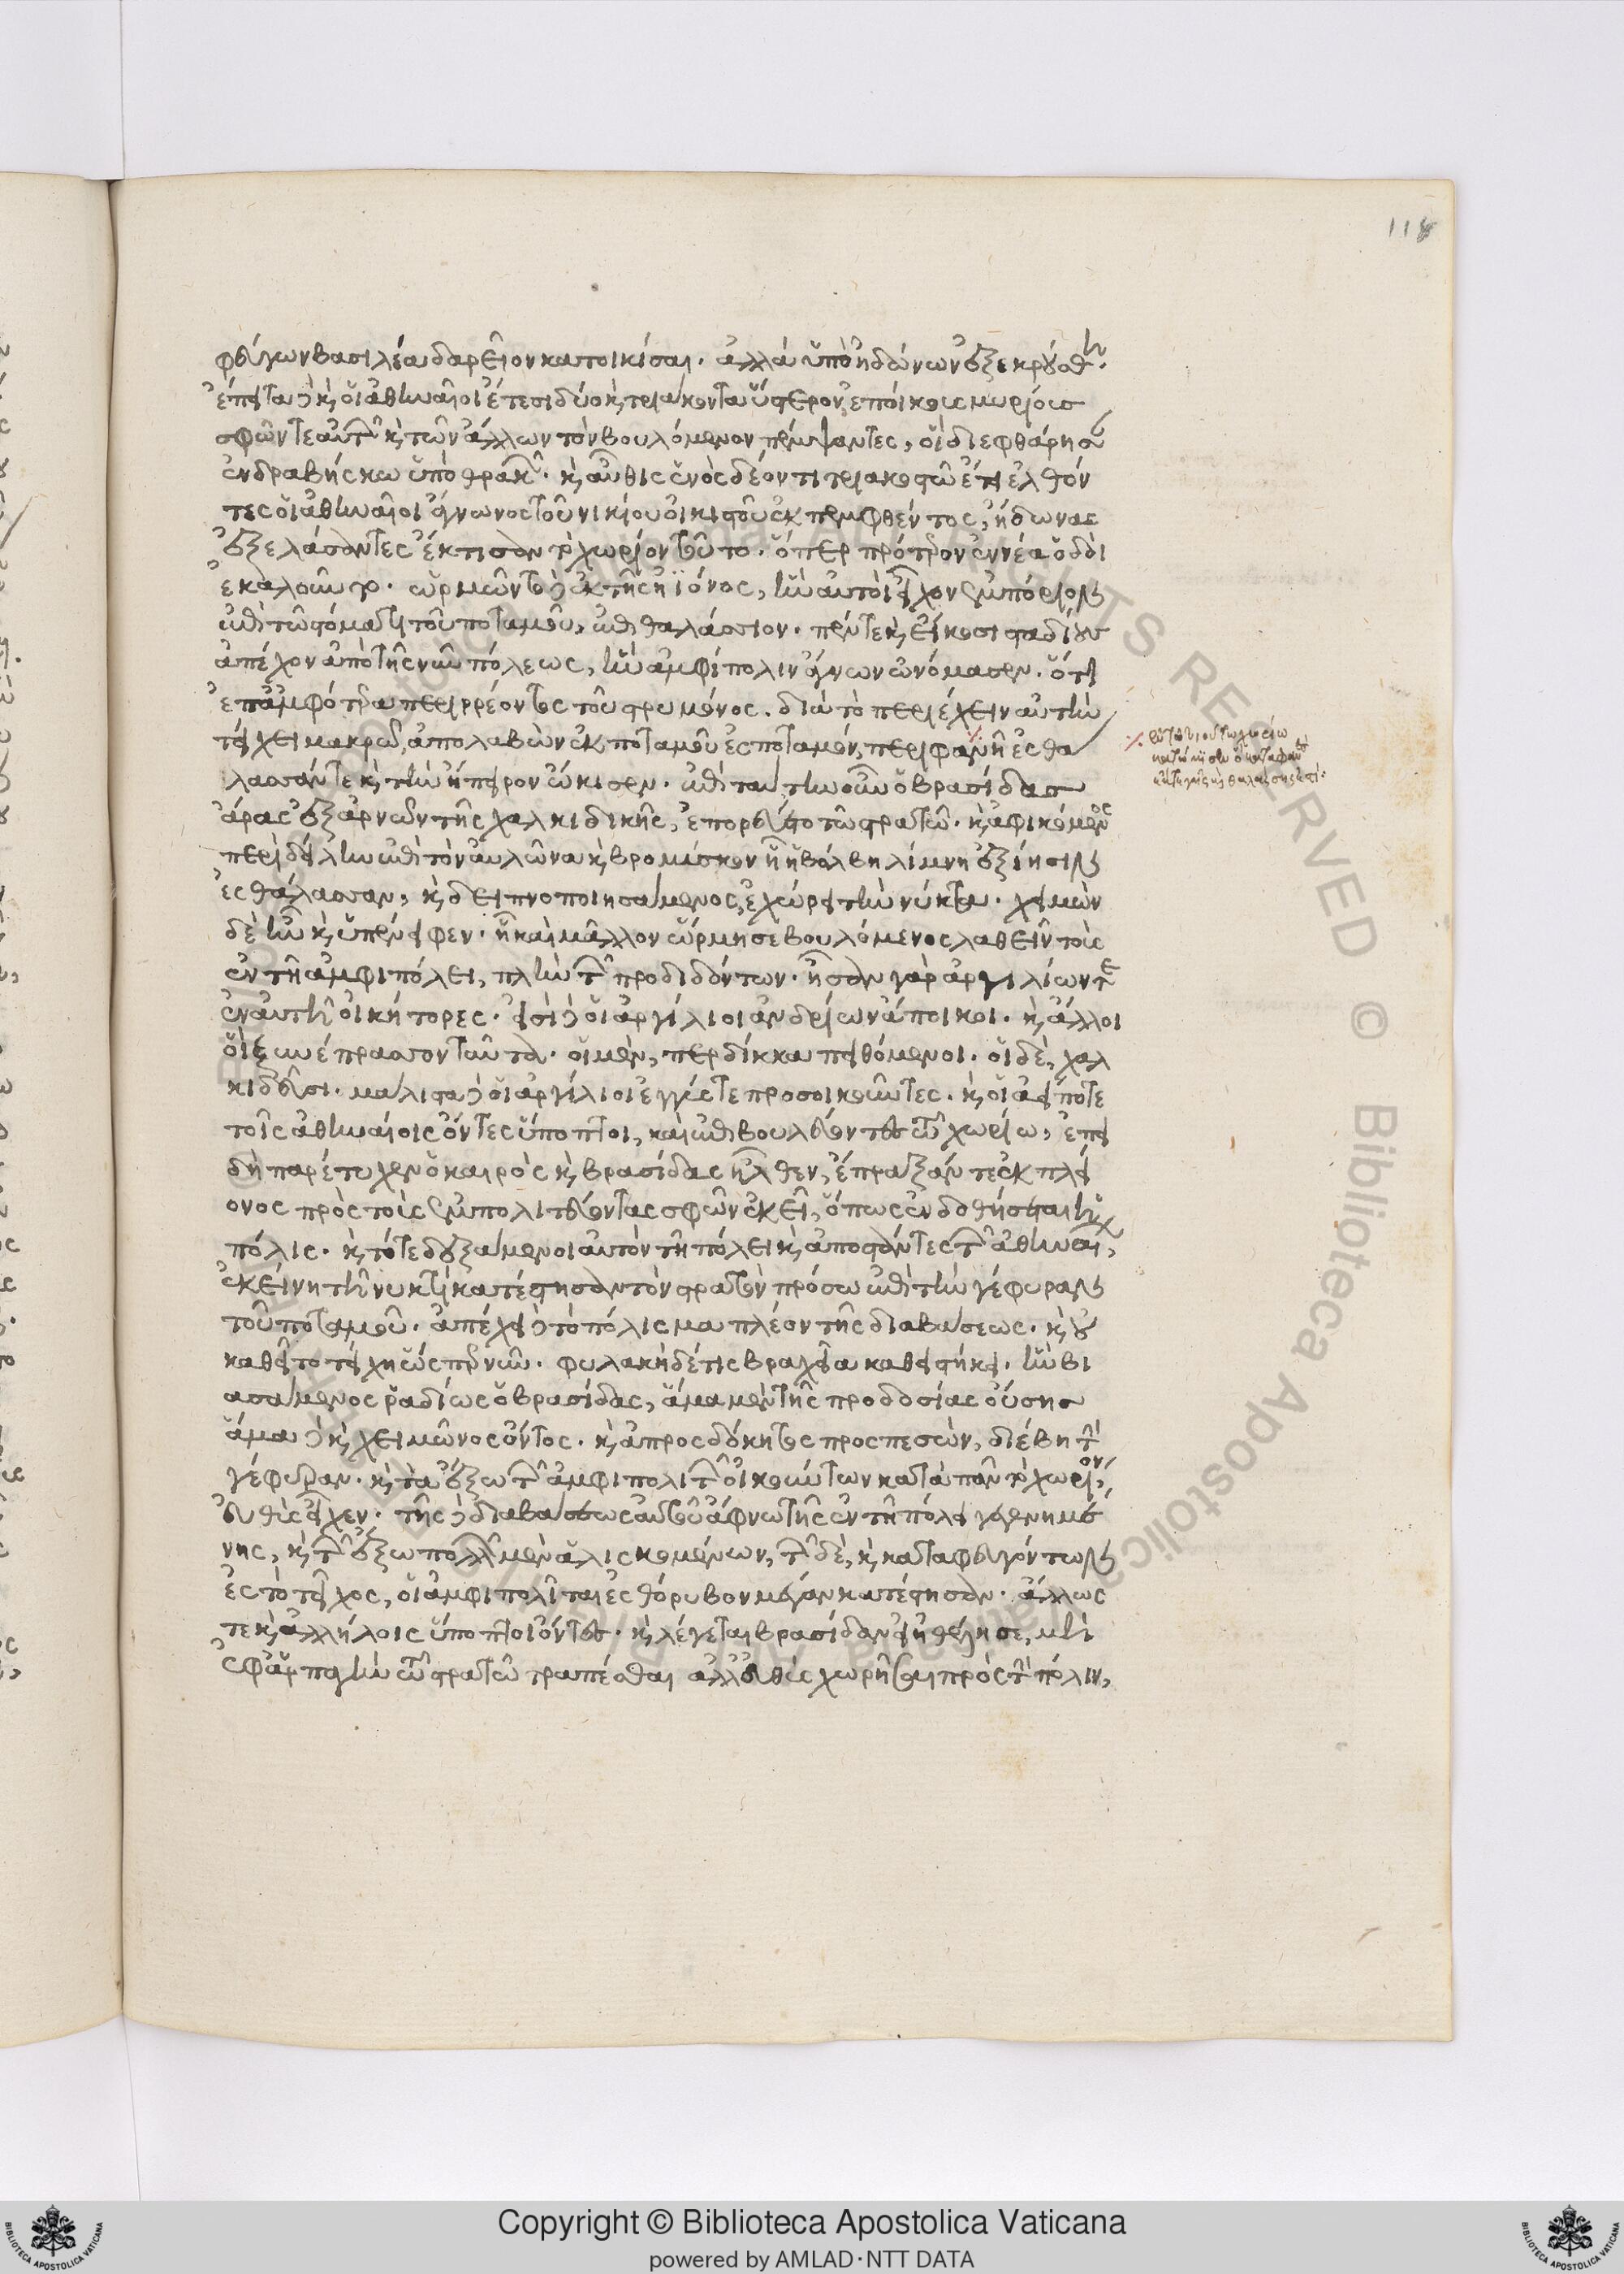 118
φεύγων βασιλέα δαρεῖον κατοικίσαι. ἀλλὰ ὑπὸ ἠδώνων ἐξεκρούσθη.
ἔπειτα δὲ καὶ οἱ ἀθηναῖοι ἔτεσι δύο καὶ τριάκοντα ὕστερον ἐποίκους μυρίους
σφῶν τε αὐτῶν καὶ τῶν ἄλλων τὸν βουλόμενον πέμψαντες, οἳ διεφθάρησαν
ἐν δραβήσκω ὑπὸ θρακῶν. καὶ αὖθις ἑνὸς δέοντι τριακοστῶ ἔτει ἐλθόν
τες οἱ ἀθηναῖοι ἅγνωνος τοῦ νικίου οἰκιστοῦ ἐκπεμφθέντος, ἠδωνας
ἐξελάσαντες ἔκτισαν τὸ χωρίον τοῦτο. ὅπερ πρότερον ἐννέα ὁδοὶ
ἐκαλοῦντο. ὡρμῶντο δὲ ἐκ τῆς ἠϊόνος, ἣν αὐτοὶ εἶχον ἐμπόριον
ἐπὶ τῶ στόματι τοῦ ποταμοῦ, ἐπιθαλάσσιον. πέντε καὶ εἴκοσι σταδίους
ἀπέχον ἀπὸ τῆς νῦν πόλεως, ἣν ἀμφίπολιν ἅγνων ὠνόμασεν. ὅτι
ἐπ' ἀμφότερα περιρρέοντος τοῦ στρυμόνος. διὰ τὸ περιέχειν αὐτὴν
τείχει μακρῶ, ἀπολαβὼν ἐκ ποταμοῦ ἐς ποταμόν, περιφανῆ ἐς θά
λασσάν τε καὶ τὴν ἤπειρον ὤκισεν. ἐπὶ ταύτην οὖν ὁ βρασίδας
ἄρας ἐξ ἀρνῶν τῆς χαλκιδικῆς, ἐπορεύετο τῶ στρατῶ. καὶ ἀφικόμενος
περὶ δείλην ἐπὶ τὸν αὐλῶνα καὶ βρομίσκον ἧ ἡ βόλβη λίμνη ἐξίησιν
ἐς θάλασσαν, καὶ δειπνοποιησάμενος, ἐχώρει τὴν νύκτα. χειμὼν
δὲ ἦν καὶ ὑπένειφεν. ἧ καὶ μᾶλλον ὥρμησε βουλόμενος λαθεῖν τοὺς
ἐν τῆ ἀμφιπόλει, πλὴν τῶν προδιδόντων. ἦσαν γὰρ ἀργιλίων τε
ἐν αὐτῆ οἰκήτορες. εἰσὶ δὲ οἱ ἀργίλιοι ἀνδρίων ἄποικοι. καὶ ἄλλοι
οἳ ξυνέπρασσον ταῦτα. οἱ μὲν, περδίκκα πειθόμενοι. οἱ δὲ, χαλ
κιδεῦσι. μάλιστα δὲ οἱ ἀργίλιοι ἐγγύς τε προσοικοῦντες. καὶ οἱ ἀείποτε
τοῖς ἀθηναίοις ὄντες ὕποπτοι, καὶ ἐπιβουλεύοντες τῶ χωρίω, ἐπει
δὴ παρέτυχεν ὁ καιρὸς καὶ βρασίδας ἦλθεν, ἔπραξάν τε ἐκ πλεί
ονος πρὸς τοὺς ἐμπολιτεύοντας σφῶν ἐκεῖ, ὅπως ἐνδοθήσεται ἡ
πόλις. καὶ τότε δεξάμενοι αὐτὸν τῆ πόλει καὶ ἀποστάντες τῶν ἀθηναίων,
ἐκείνη τῆ νυκτὶ κατέστησαν τὸν στρατὸν πρόσω ἐπὶ τὴν γέφυραν
τοῦ ποταμοῦ. ἀπέχει δὲ τὸ πόλισμα πλέον τῆς διαβάσεως. καὶ οὐ
καθεῖτο τείχη ὥσπερ νῦν. φυλακὴ δέ τις βραχεῖα καθειστήκει. ἣν βι
ασάμενος ῥαδίως ὁ βρασίδας, ἅμα μὲν τῆς προδοσίας οὔσης
ἅμα δὲ καὶ χειμῶνος ὄντος. καὶ ἀπροσδόκητος προσπεσὼν, διέβη τὴν
γέφυραν. καὶ τὰ ἔξω τῶν ἀμφιπολιτῶν οἰκούντων κατὰ πᾶν τὸ χωρίον,
εὐθὺς εἶχεν. τῆς δὲ διαβάσεως αὐτοῦ ἄφνω τῆς ἐν τῆ πόλει γεγενημέ
νης, καὶ τῶν ἔξω πολλῶν μὲν ἁλισκομένων, τῶν δὲ, καὶ καταφευγόντων
ἐς τὸ τεῖχος, οἱ ἀμφιπολῖται ἐς θόρυβον μέγαν κατέστησαν. ἄλλως
τε καὶ ἀλλήλοις ὕποπτοι ὄντες. καὶ λέγεται βρασίδαν εἰ ἠθέλησε, μὴ
ἐφ' ἁρπαγὴν τῶ στρατῶ τραπέσθαι ἀλλ' εὐθὺς χωρῆσαι πρὸς τὴν πόλιν,
Biblioteca Apostolica Vaticana
ALL RIGHTS RESERVED ©
Copyright © Biblioteca Apostolica Vaticana
powered by AMLAD·NTT DATA
BIBLIOTECA APOSTOLICA VATICANA
BIBLIOTECA APOSTOLICA VATICANA